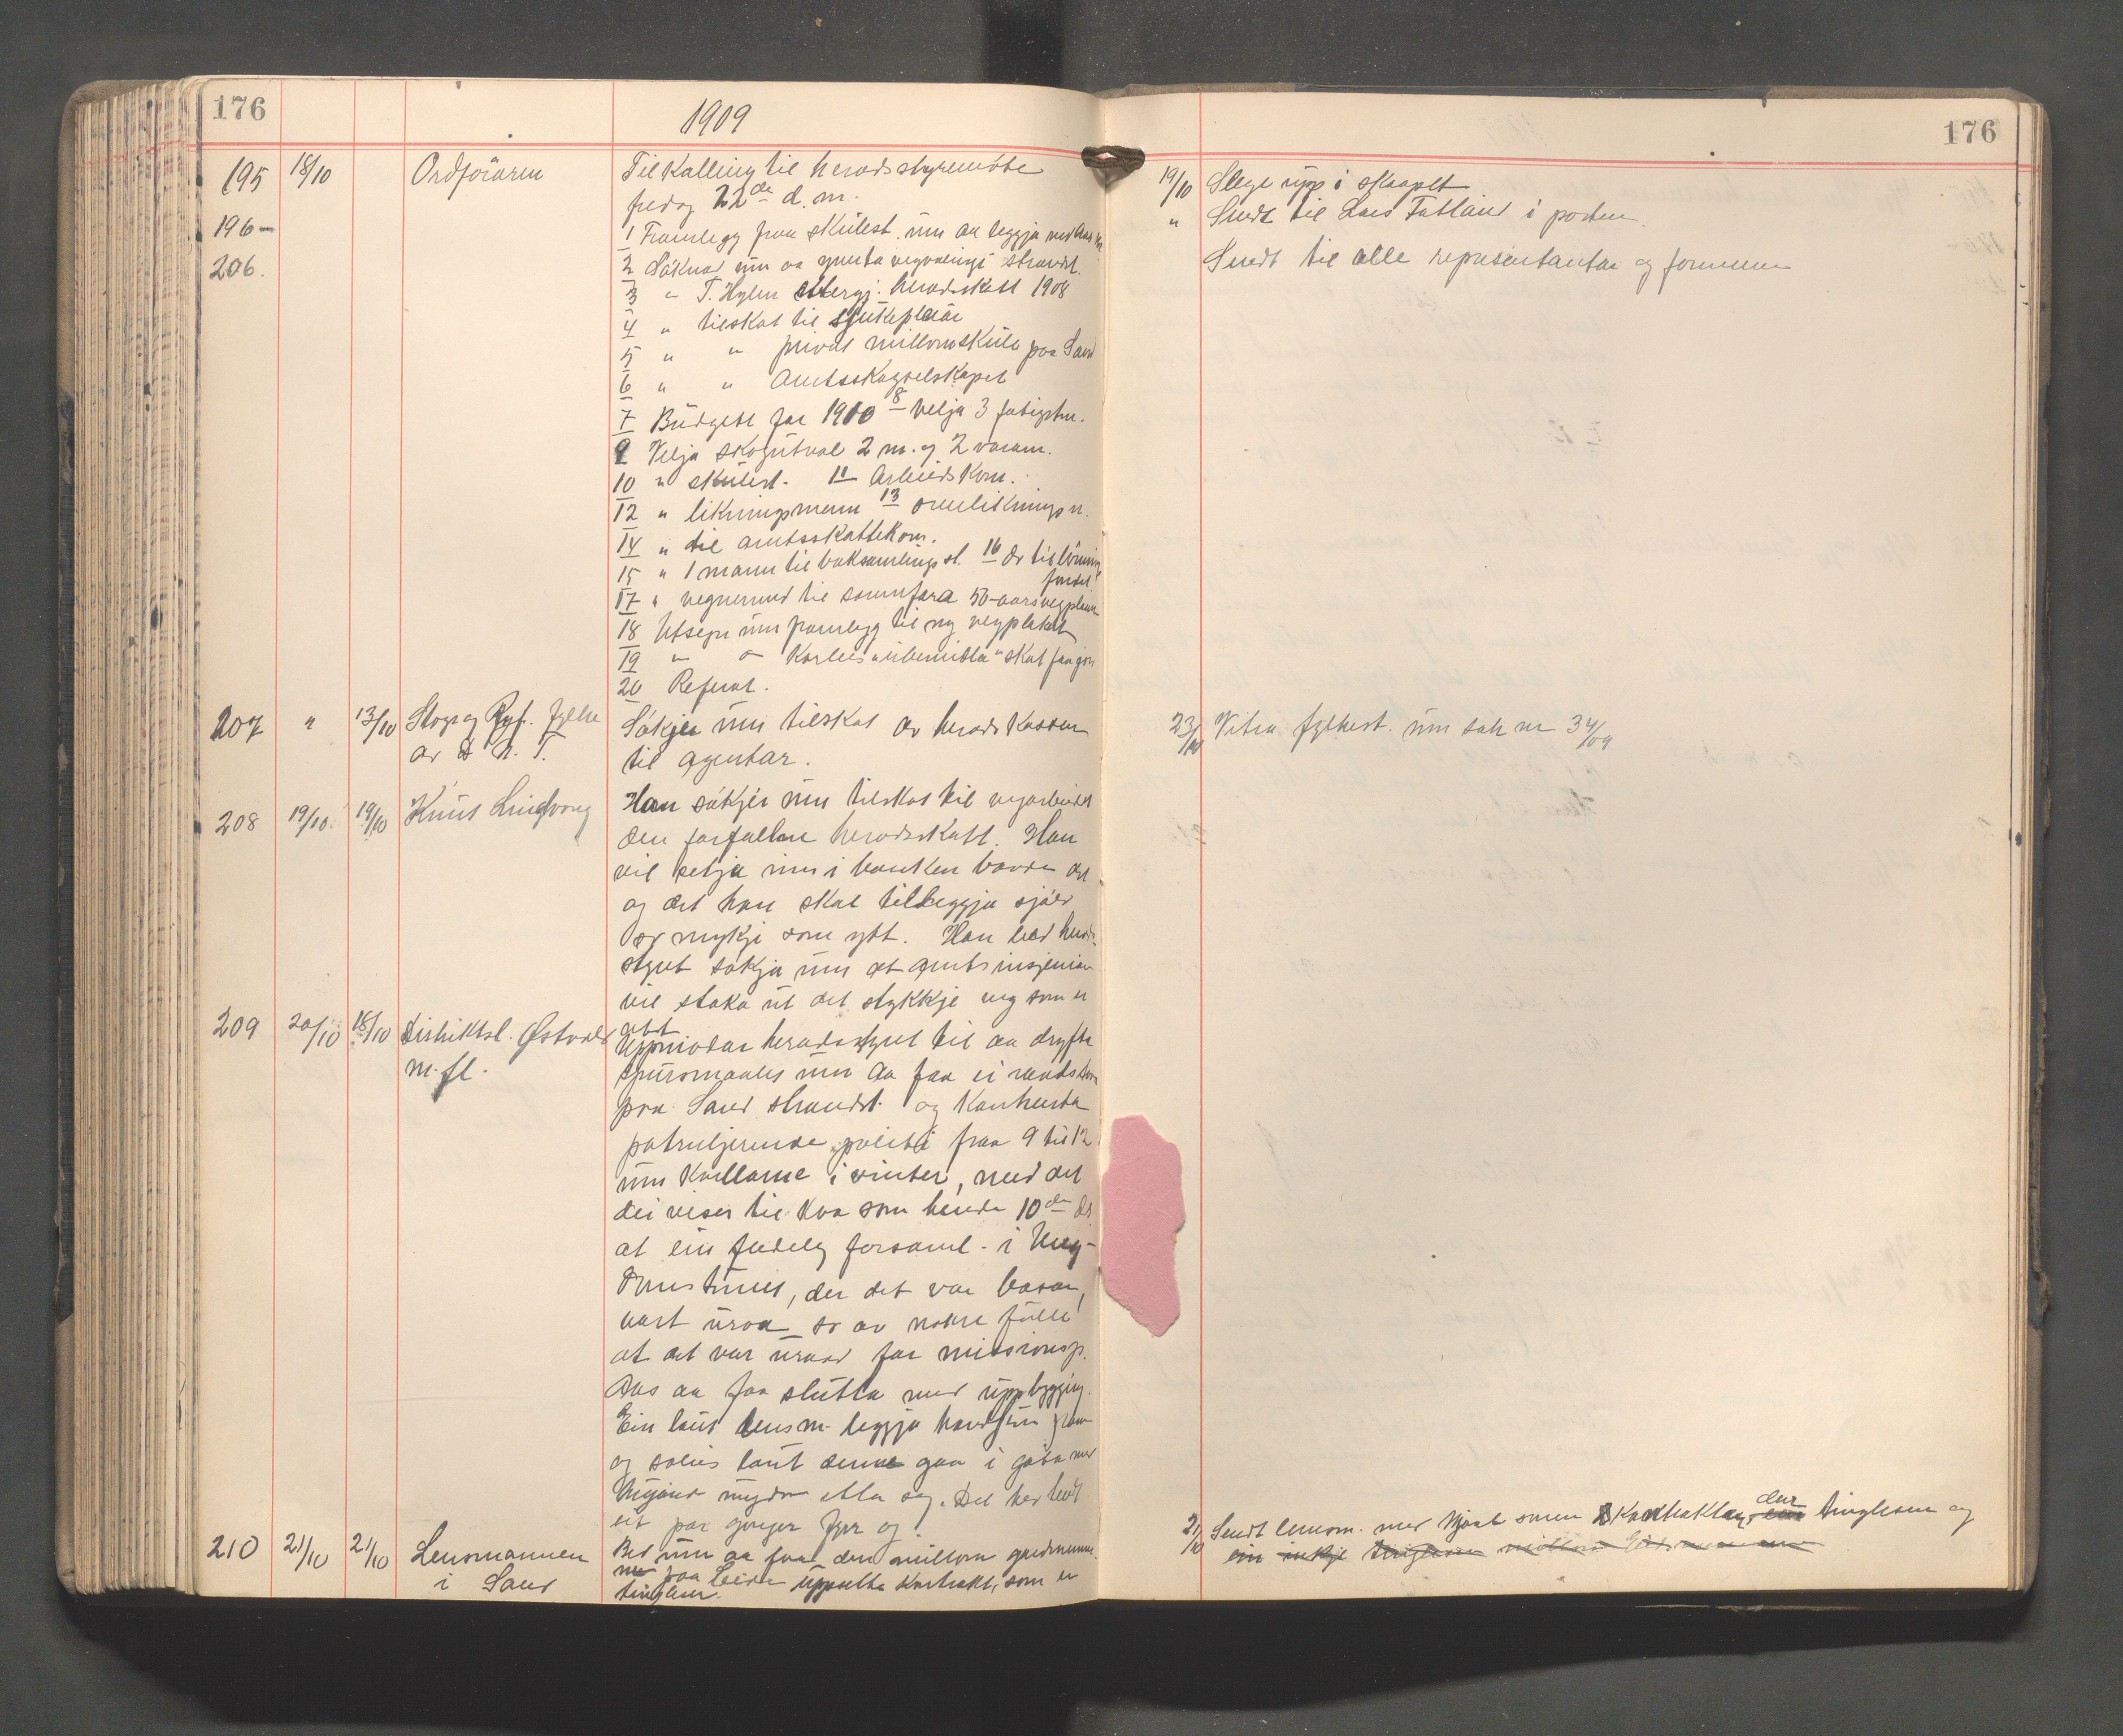 176
1909
195 18/10 Ordföraren Tilkalling til heradsstyremöte
fredag 22de d.m.
196-
206.
1 Framlegg fraa skulest. um aa leggja ned
2 Söknad um aa grunda vegvalengi strandst.
3 " T. Hylen ettergj. heradsskatt 1908
4 " tilskot til sjukepleiar
5 " " privat millomskule paa Sand
6 " " Amtsskogselskapet
7 Budgett for 1910 8 velja 3 fatigstm.
9 Velja skogutval 2 m. og 2 varam.
10 " skulest. 11 Arbeidskom.
12 " likningsmenn 13 overlikningsn.
14 " til amtsskattekom.
15 " 1 mann til boksamlingsst. 16 Or tiltrinings
fondet
17 " vegnemnd til samnfara 50-aarsvegplanen
18 Utsegn um framlegg til ny vegplakat
19 " " Karlus "ubemidla" skat
20 Referat.
207 " 13/10 Skogr og Ryf. fylke
av D N. T.
Sökjer um tilskot av heradskassen
til agentar.
208 19/10 19/10 Knut Lindvong
Han sökjer um tilskot til vegarbeidet
den forfallne heradsskatt. Han
vil setja inn i banken baade det
og det han skal tilleggja sjölv
so mykje som ytt. Han bed herads-
styret sökja um at amtsinsjeniör
vil staka ut det stykkje veg som er
att
209 20/10 18/10 Distriktsl. Østvold
m.fl.
Uppmodar heradsstyret til aa dryfta
spursmaalet um aa faa ei
paa Sand strandst. og
patruljerende politi fraa 9 til 12
um kvellarne i vinter, med det
dei viser til kva som hende 10de ds
at ein fredeleg forsaml. i Ung-
domstunet, der det var basar,
vart uroa so av nokre fulle
at det var uraad for missionsp.
Aas aa faa slutta med uppbygging.
Ein laut lensm. leggja handjern paa
og solus laut denne gaa i gata med
mengd etter seg. Det her hendt
eit par gonger fyrr og.
210 21/10 21/10 Lensmannen
i Sand
Bed um aa faa den millom gardmennene
paa Leira uppsette kontrakt, som er
tinglesen.
176
19/10 Slege upp i skaapet
" Sendt til Lars Fatland i posten.
Sendt til alle representantar og formenn
23/10 Vitra fylkest. um sak nr 34/09
21/10 Sendt lensm. med Mjaal somen kontrakten, den tinglesen og
ein inkje tinglesen millom